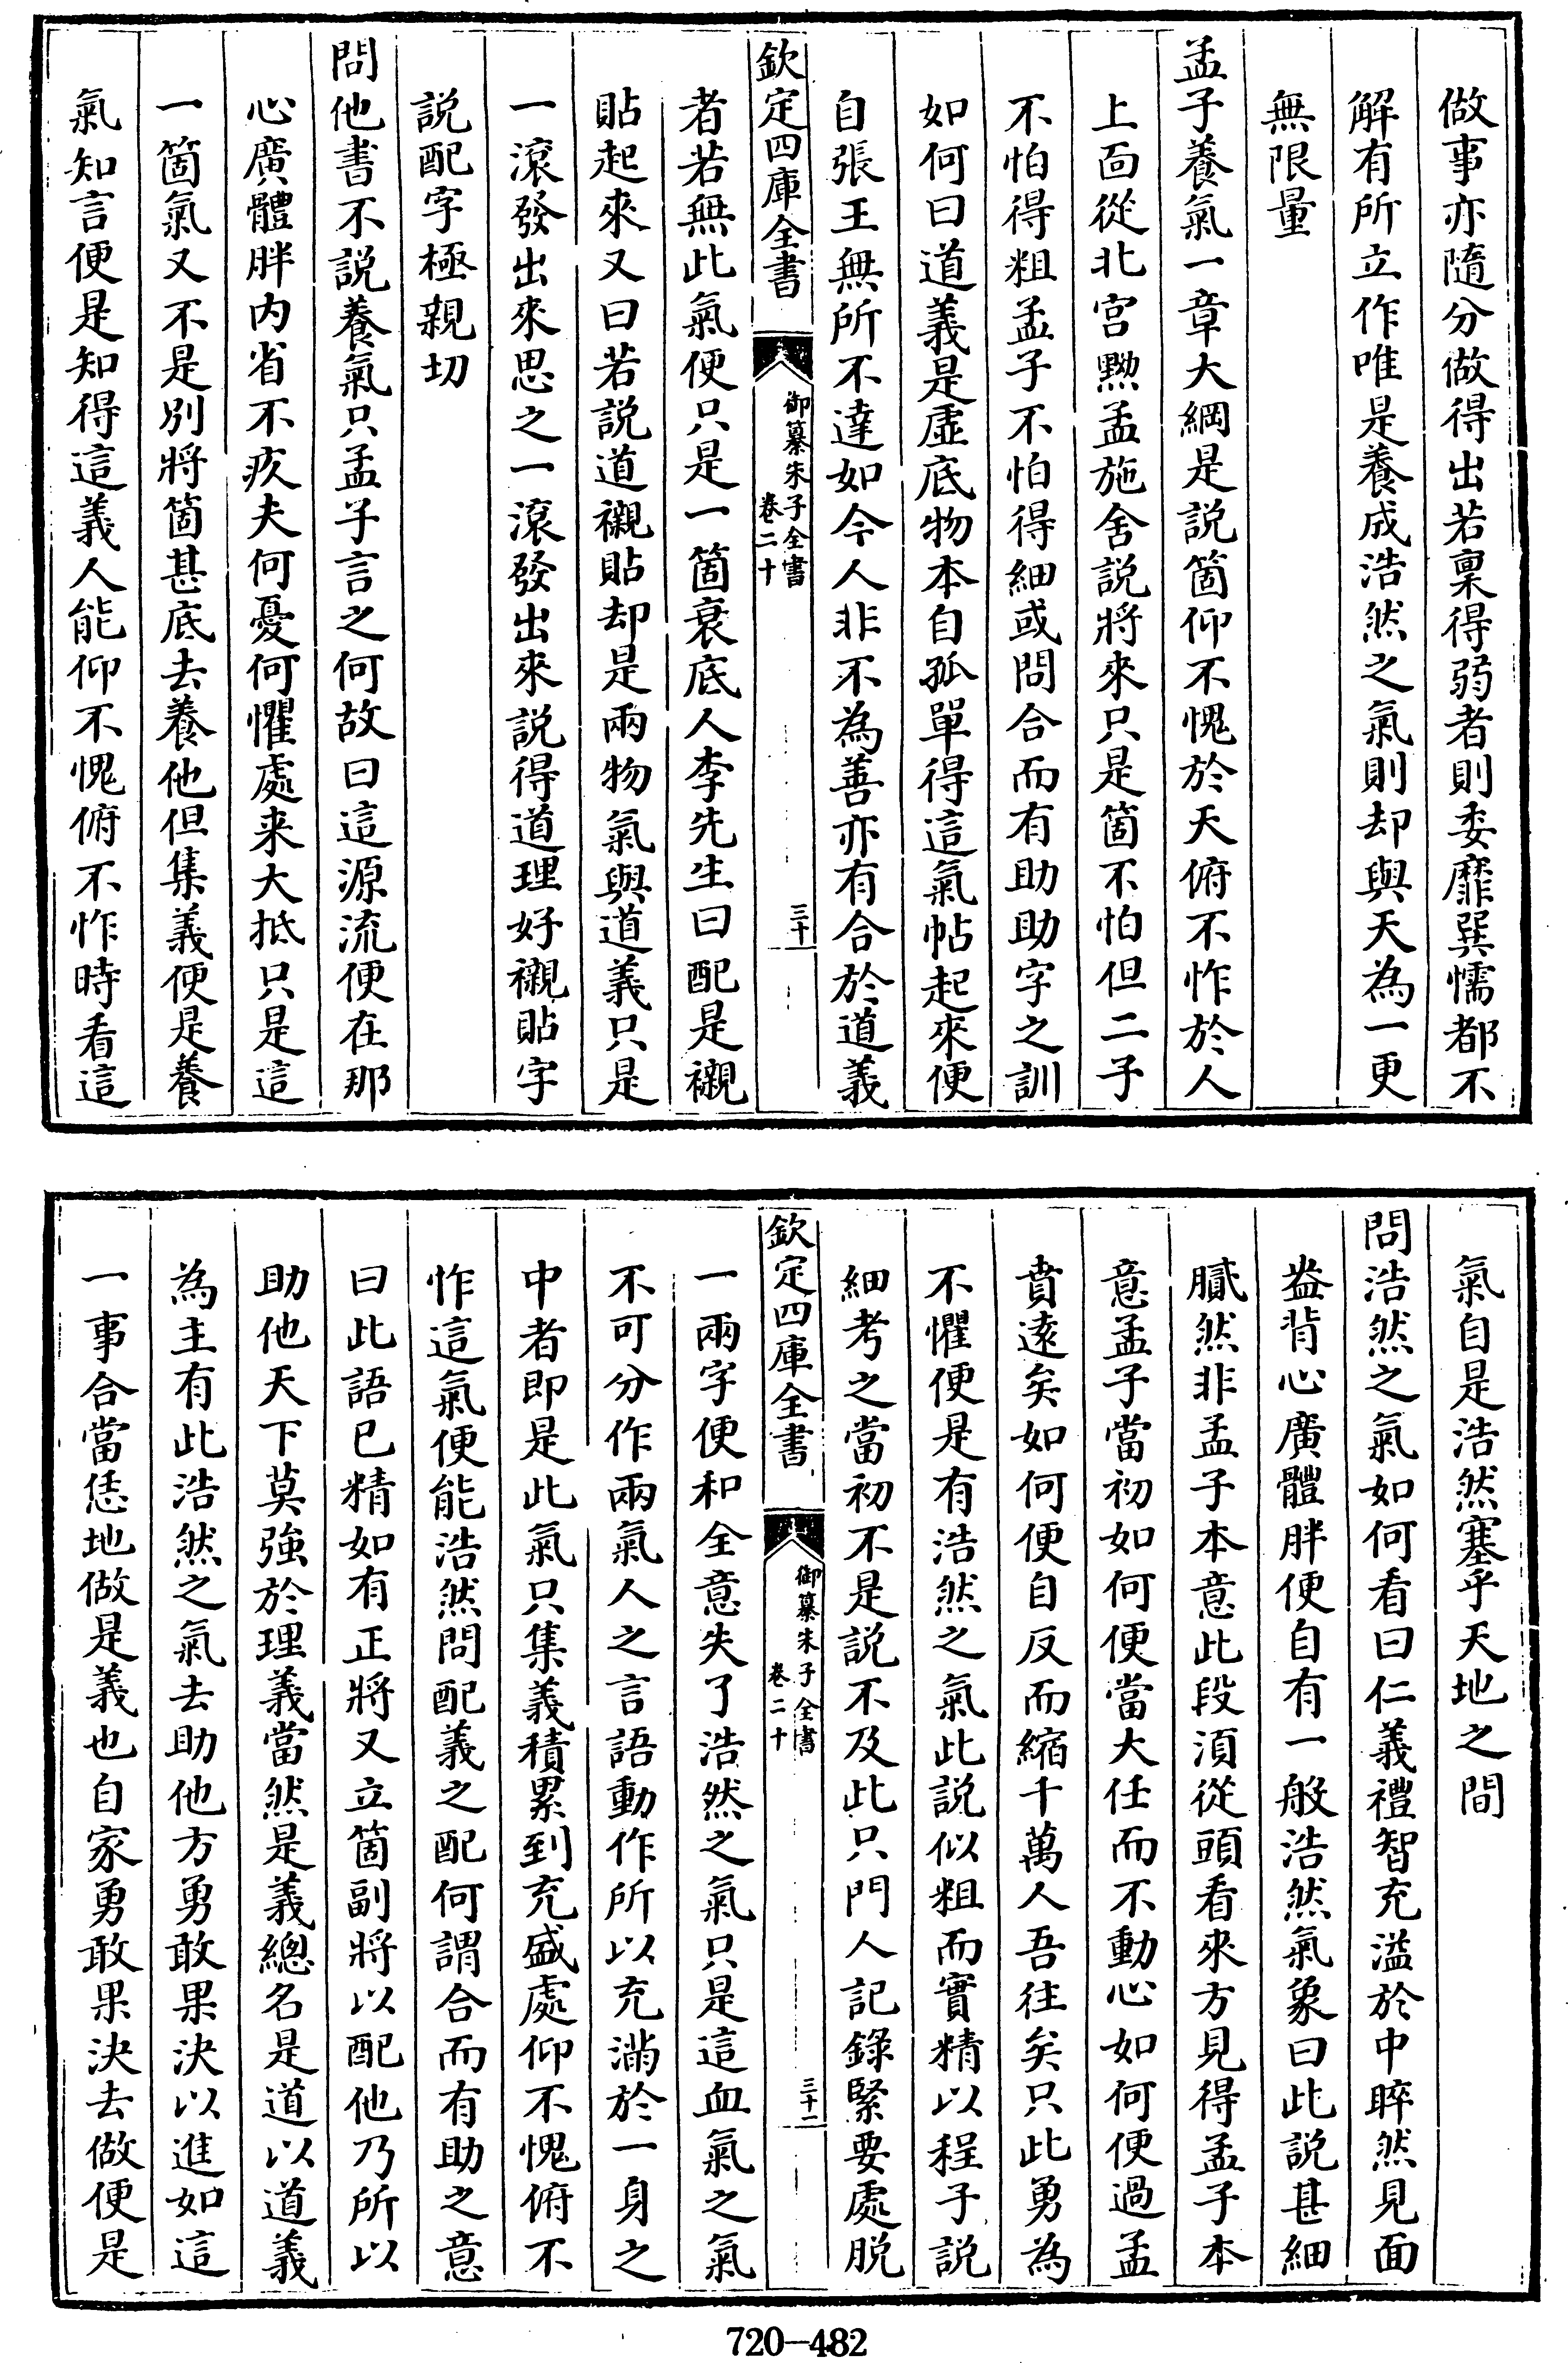 做事亦隨分做得出若稟得弱者則委靡巽懦都不
解有所立作唯是養成浩然之氣則却與天為一更
無限量
孟子養氣一章大綱是説箇仰不愧於天俯不怍於人
上面從北宫黝孟施舍説將來只是箇不怕但二子
不怕得粗孟子不怕得細或問合而有助助字之訓
如何曰道義是虛底物本自孤單得這氣帖起來便
自張王無所不達如今人非不為善亦有合於道義
欽定四庫全書
御纂朱子全書
卷二十
三十
者若無此氣便只是一箇衰底人李先生曰配是襯
貼起來又曰若説道襯貼却是兩物氣與道義只是
一滾發出來思之一滾發出來説得道理好襯貼字
説配字極親切
問他書不説養氣只孟子言之何故曰這源流便在那
心廣體胖内省不疚夫何憂何懼處来大抵只是這
一箇氣又不是別將箇甚底去養他但集義便是養
氣知言便是知得這義人能仰不愧俯不怍時看這
氣自是浩然塞乎天地之間
問浩然之氣如何看曰仁義禮智充溢於中睟然見面
盎背心廣體胖便自有一般浩然氣象曰此説甚細
膩然非孟子本意此段湏從頭看來方見得孟子本
意孟子當初如何便當大任而不動心如何便過孟
賁逺矣如何便自反而縮千萬人吾往矣只此勇為
不懼便是有浩然之氣此説似粗而實精以程子説
細考之當初不是説不及此只門人記錄緊要處脱
欽定四庫全書
御纂朱子全書
卷二十
三十一
一兩字便和全意失了浩然之氣只是這血氣之氣
不可分作兩氣人之言語動作所以充滿於一身之
中者即是此氣只集義積累到充盛處仰不愧俯不
怍這氣便能浩然問配義之配何謂合而有助之意
曰此語已精如有正將又立箇副將以配他乃所以
助他天下莫強於理義當然是義總名是道以道義
為主有此浩然之氣去助他方勇敢果決以進如這
一事合當恁地做是義也自家勇敢果決去做便是
720-482